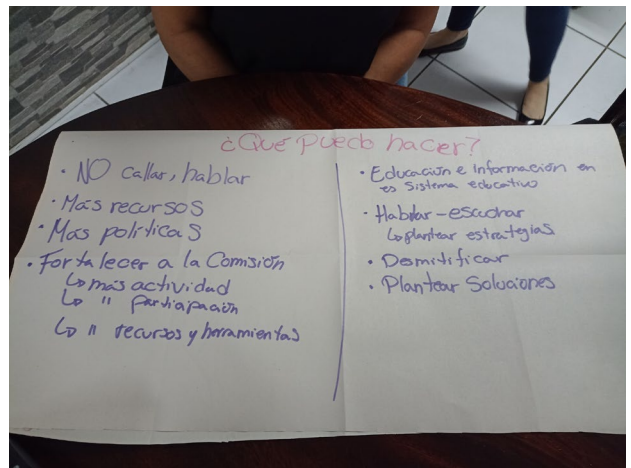 ¿Qué puedo hacer?
• NO callar, hablar
• Más recursos
• Más políticas
• Fortalecer a la Comisión
↳ más actividad
↳ " partiapación
↳ " recursos y herramientas
• Educación e Información en
es Sistema educativo
• Hablar - escuchar
↳ plantear estrategias
• Desmitificar
• Plantear Soluciones